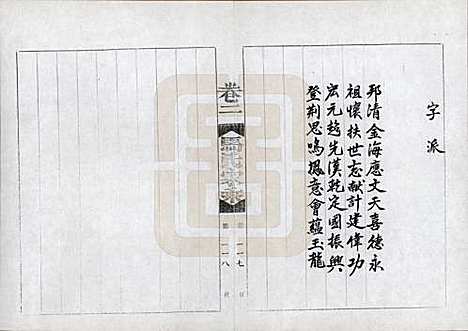 字派
邦清金海應文天喜德永
祖懷扶世志獻計建偉功
宏元趋先漢乾定國振興
登荆思鳴 意會蘊玉龍
卷二
馬氏宗譜
一一七
一一八